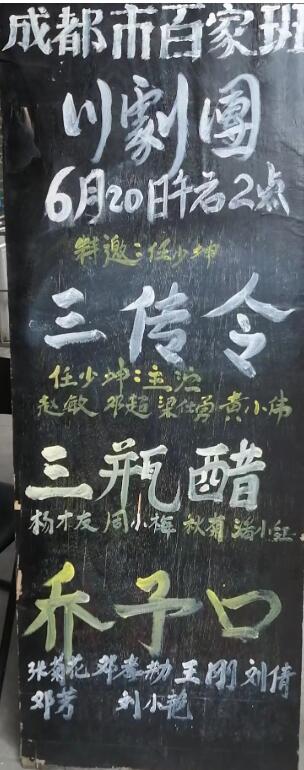 成都市百家班
川劇團
6月20日午后2点
特邀:任少坤
三传令
任少坤:主演
赵敏 邓超 梁仕勇 黄小伟
三瓶醋
杨才友 周小梅 秋菊 潘小红
乔子口
张菊花 邓 王刚 刘倩
邓芳 刘小艳